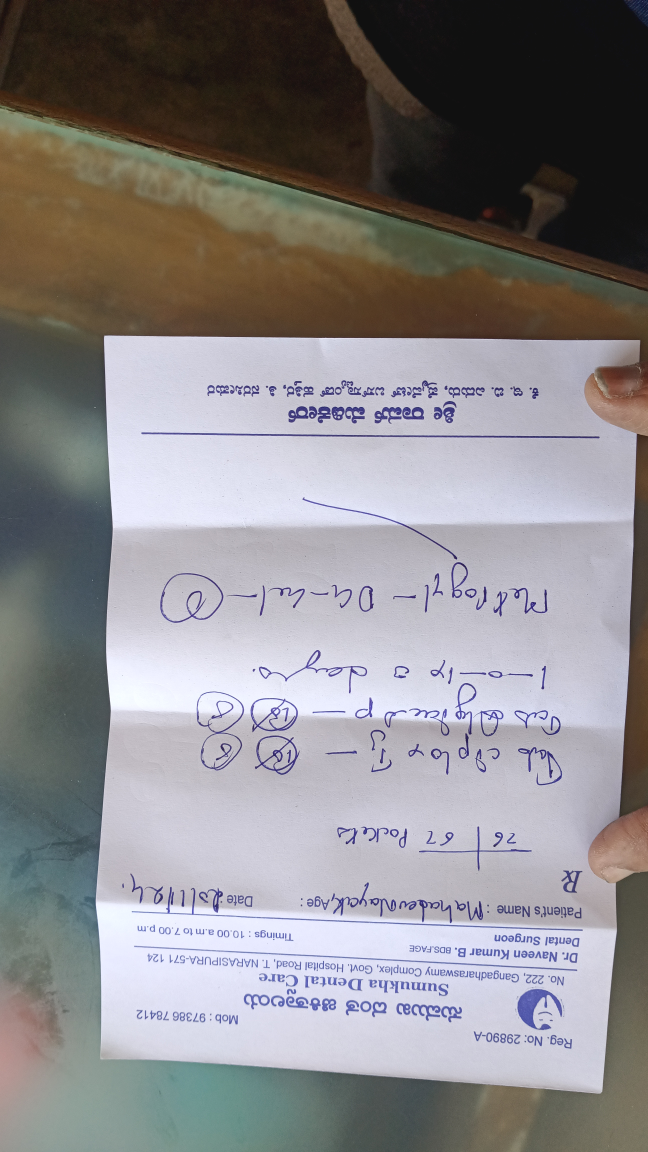 Reg. No: 29890-A
Mob : 97386 78412
ಸುಮುಖ ದಂತ ಚಿಕಿತ್ಸಾಲಯ
Sumukha Dental Care
No. 222, Gangadharaswamy Complex, Govt. Hospital Road, T. NARASIPURA-571 124
Dr. Naveen Kumar B. BDS.FAGE
Dental Surgeon
Timings : 10.00 a.m to 7.00 p.m
Patient's Name : Mahadev Nayak, Age : Date 20/11/24.
Rx
76 | 67 Pockets
Tab Ciplox TZ — 10 6
Tab P — 10 6
1—0—1 x 3 days.
Metrogyl — DG—Gel — 1
ಶ್ರೀ ರಾಮ್ ಮೆಡಿಕಲ್
ಕೆ. ಇ. ಬಿ. ಎದುರು, ಪ್ರೈವೇಟ್ ಬಸ್ ಸ್ಟ್ಯಾಂಡ್ ಹತ್ತಿರ, ತಿ. ನರಸೀಪುರ